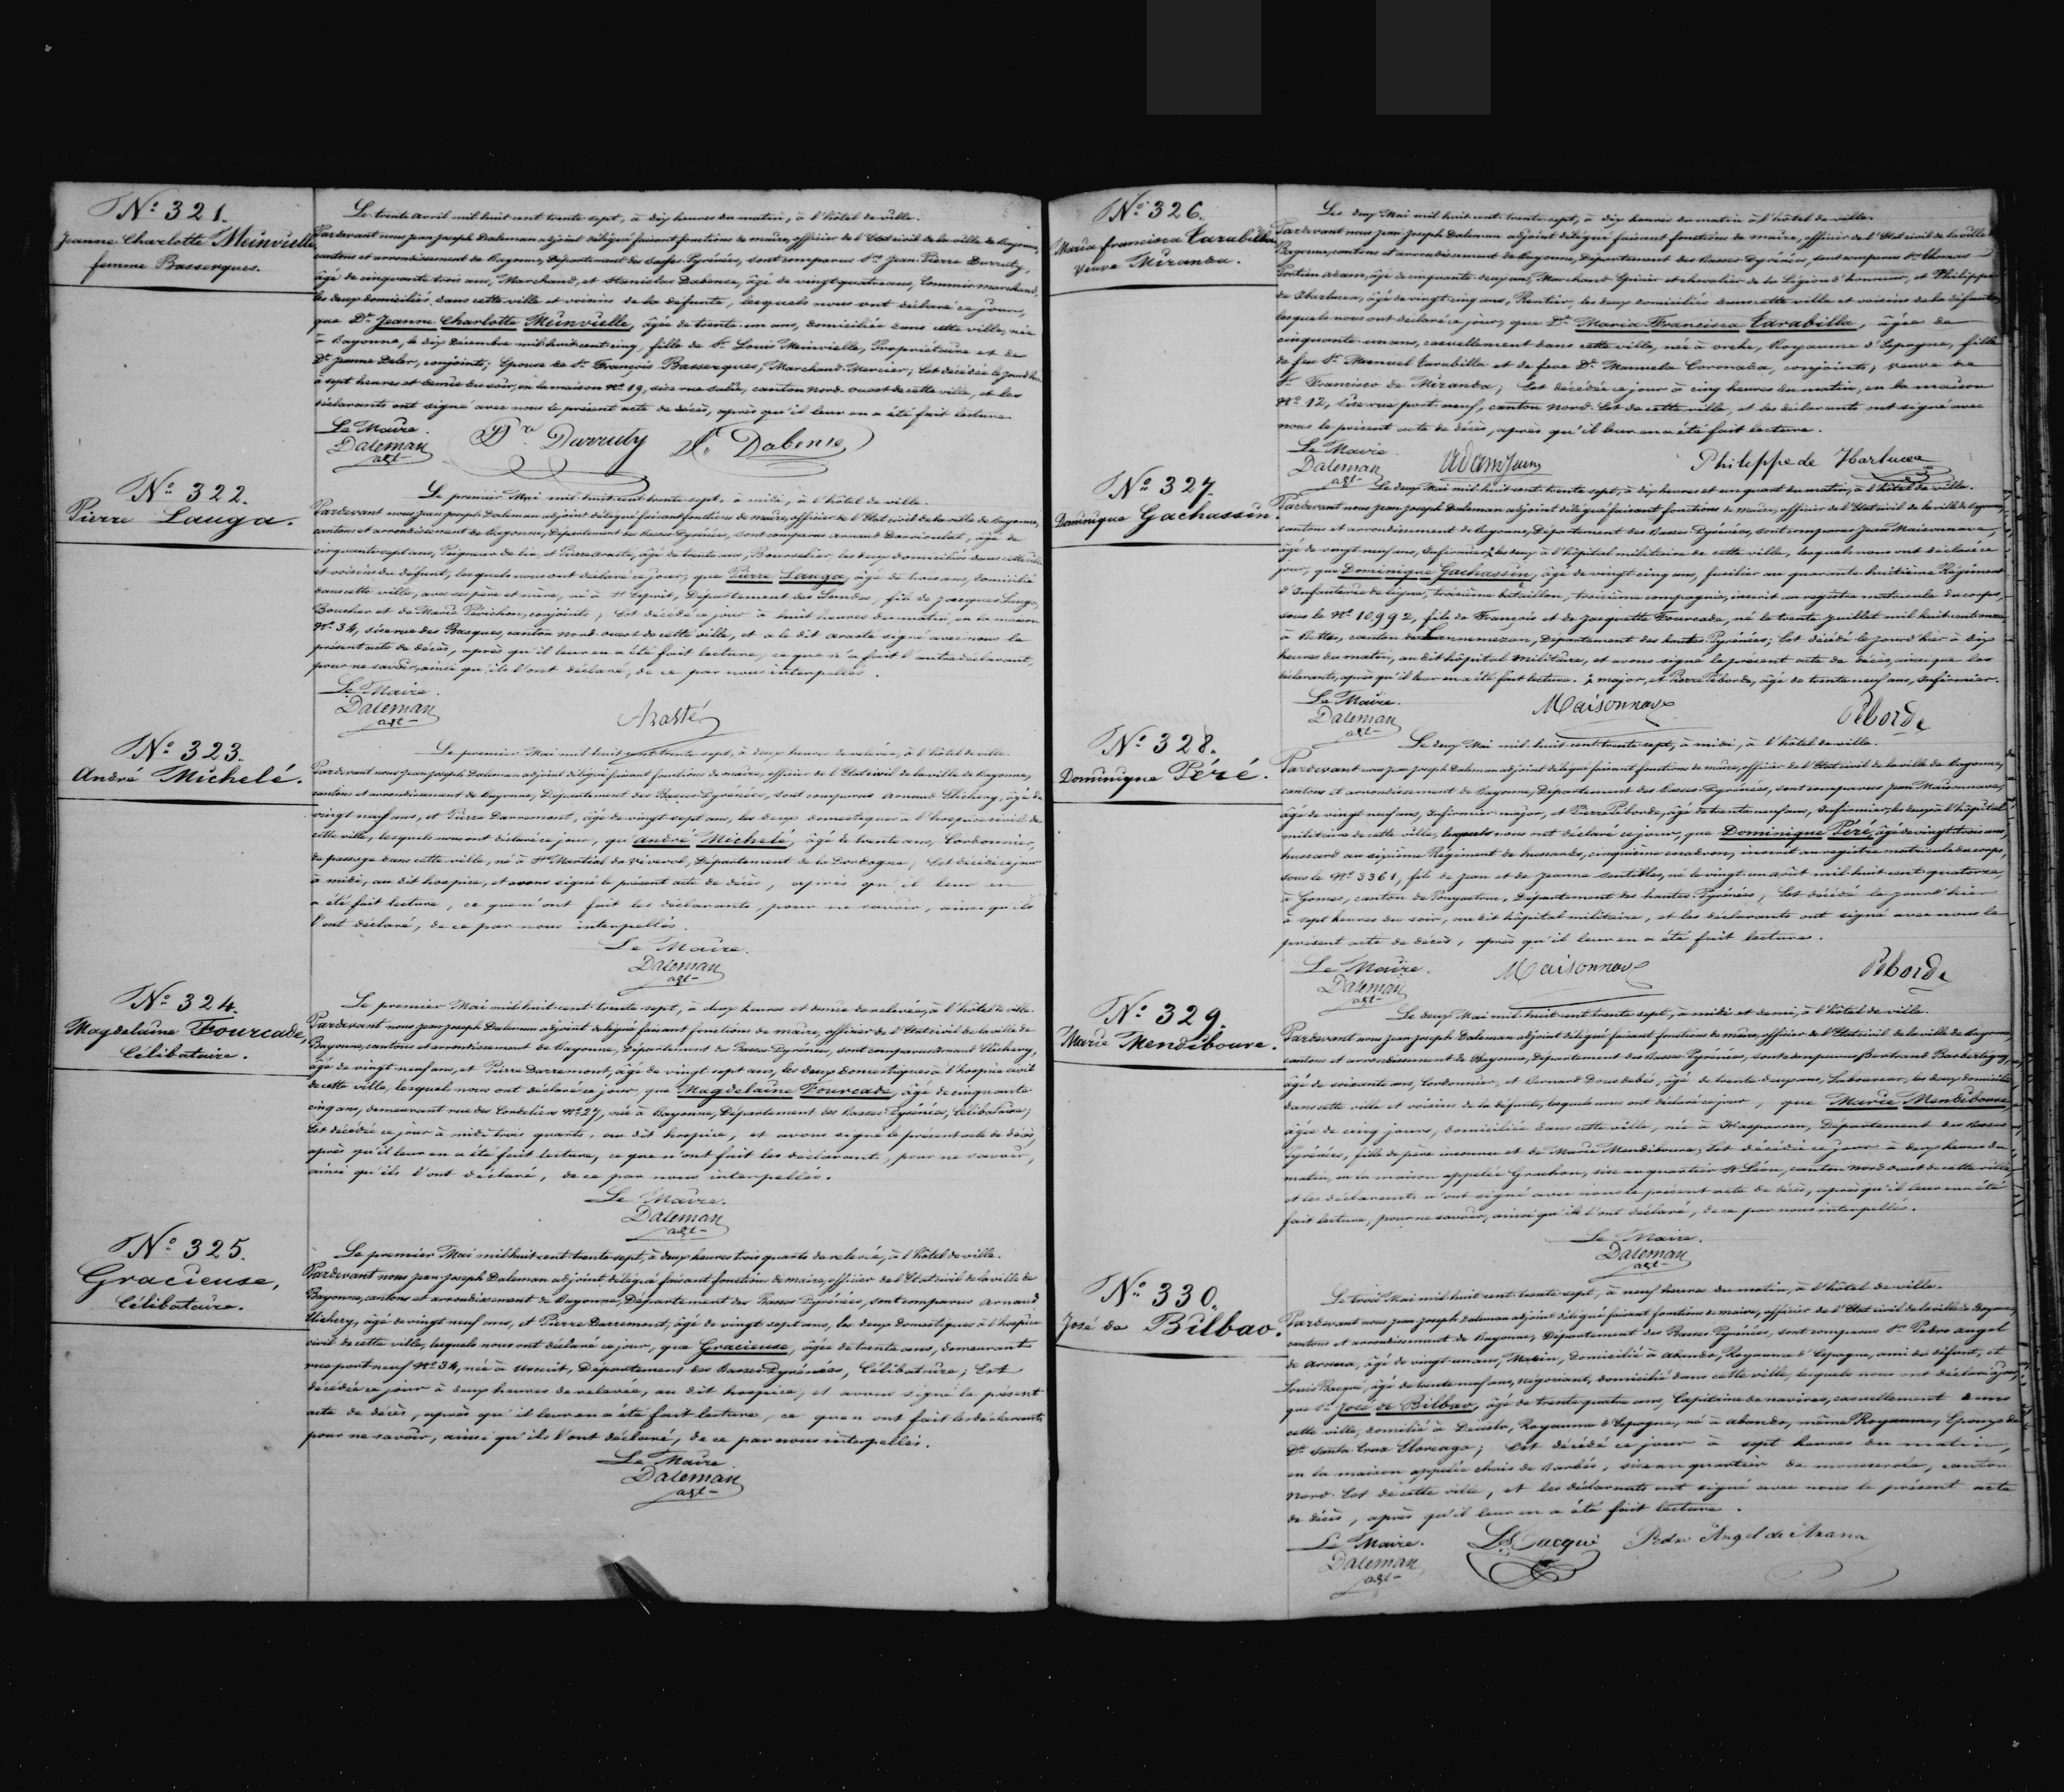 N.º 321.
Jeanne Charlotte Meinvielle,
femme Basserques.
Le trente avril mil huit cent trente sept, à dix heures du matin, à l'hôtel de ville.
Pardevant nous Jean Joseph Daleman adjoint délégué faisant fonctions de maire, officier de l'Etat civil de la ville de Bayonne,
cantons et arrondissement de Bayonne, Département des Basses Pyrénées, sont comparus S.rs Jean Pierre Durruty,
âgé de cinquante trois ans, Marchand, et Stanislas Dabense, âgé de vingt quatre ans, Commis marchand,
les deux domiciliés dans cette ville et voisins de la défunte, lesquels nous ont déclaré ce jour,
que D.e Jeanne Charlotte Meinvielle, âgée de trente un ans, domiciliée dans cette ville, née
à Bayonne, le dix Décembre mil huit cent cinq, fille de S.r Louis Meinvielle, Propriétaire et de
D.e Jeanne Deler, conjoints; Epouse de S.r François Basserques, Marchand Mercier; Est décédée le jourd'hier
à sept heures et demie du soir, en la maison N.º 19, sise rue Salie, canton Nord-ouest de cette ville, et les
déclarants ont signé avec nous le présent acte de décès, après qu'il leur en a été fait lecture.
Le Maire.
Daleman adt
Durruty
St. Dabense
N.º 322.
Pierre Lauga.
Le premier Mai mil huit cent trente sept, à midi, à l'hôtel de ville.
Pardevant nous Jean Joseph Daleman adjoint délégué faisant fonctions de maire, officier de l'Etat civil de la ville de Bayonne,
cantons et arrondissement de Bayonne, Département des Basses Pyrénées, sont comparus Arnaud Darriulat, âgé de
cinquante sept ans, Peigneur de lin, et Pierre Arasté, âgé de trente ans, Bourrelier, les deux domiciliés dans cette ville
et voisins du défunt, lesquels nous ont déclaré ce jour, que Pierre Lauga, âgé de trois ans, domicilié
dans cette ville, avec ses père et mère, né à St Esprit, Département des Landes, fils de Jacques Lauga,
Boucher et de Marie Périchon, conjoints; Est décédé ce jour à huit heures du matin, en la maison
N.º 34, sise rue des Basques, canton nord-ouest de cette ville, et a le dit Arasté signé avec nous le
présent acte de décès, après qu'il leur en a été fait lecture, ce que n'a fait l'autre déclarant,
pour ne savoir, ainsi qu'ils l'ont déclaré, de ce par nous interpellés.
Le Maire.
Daleman adt
Arasté
N.º 323.
André Michelé.
Le premier Mai mil huit cent trente sept, à deux heures de relevée, à l'hôtel de ville.
Pardevant nous Jean Joseph Daleman adjoint délégué faisant fonctions de maire, officier de l'Etat civil de la ville de Bayonne,
cantons et arrondissement de Bayonne, Département des Basses Pyrénées, sont comparus Arnaud Elichery, âgé de
vingt neuf ans, et Pierre Darremont, âgé de vingt sept ans, les deux domestiques à l'hospice civil de
cette ville, lesquels nous ont déclaré ce jour, qu'André Michelé, âgé de trente ans, Cordonnier,
de passage dans cette ville, né à St Martial de Viverol, Département de la Dordogne; Est décédé ce jour
à midi, au dit hospice, et avons signé le présent acte de décès, après qu'il leur en
a été fait lecture, ce que n'ont fait les déclarants, pour ne savoir, ainsi qu'ils
l'ont déclaré, de ce par nous interpellés.
Le Maire.
Daleman adt
N.º 324.
Magdelaine Fourcade,
Célibataire.
Le premier Mai mil huit cent trente sept, à deux heures et demie de relevée, à l'hôtel de ville.
Pardevant nous Jean Joseph Daleman adjoint délégué faisant fonctions de maire, officier de l'Etat civil de la ville de
Bayonne, cantons et arrondissement de Bayonne, Département des Basses Pyrénées, sont comparus Arnaud Elichery,
âgé de vingt neuf ans, et Pierre Darremont, âgé de vingt sept ans, les deux domestiques à l'hospice civil
de cette ville, lesquels nous ont déclaré ce jour, que Magdelaine Fourcade, âgée de cinquante
cinq ans, demeurant rue des Cordeliers N.º 27, née à Bayonne, Département des Basses Pyrénées, Célibataire;
Est décédée ce jour à midi trois quarts, au dit hospice, et avons signé le présent acte de décès,
après qu'il leur en a été fait lecture, ce que n'ont fait les déclarants, pour ne savoir,
ainsi qu'ils l'ont déclaré, de ce par nous interpellés.
Le Maire.
Daleman adt
N.º 325.
Gracieuse,
Célibataire.
Le premier Mai mil huit cent trente sept, à deux heures trois quarts de relevée, à l'hôtel de ville.
Pardevant nous Jean Joseph Daleman adjoint délégué faisant fonctions de maire, officier de l'Etat civil de la ville de
Bayonne, cantons et arrondissement de Bayonne, Département des Basses Pyrénées, sont comparus Arnaud
Elichery, âgé de vingt neuf ans, et Pierre Darremont, âgé de vingt sept ans, les deux domestiques à l'hospice
civil de cette ville, lesquels nous ont déclaré ce jour, que Gracieuse, âgée de trente ans, demeurant
rue port neuf N.º 34, née à Urcuit, Département des Basses Pyrénées, Célibataire; Est
décédée ce jour à deux heures de relevée, au dit hospice, et avons signé le présent
acte de décès, après qu'il leur en a été fait lecture, ce que n'ont fait les déclarants,
pour ne savoir, ainsi qu'ils l'ont déclaré, de ce par nous interpellés.
Le Maire
Daleman adt
N.º 326.
Maria Francisca Tarabilla
Veuve Miranda.
Le deux Mai mil huit cent trente sept, à dix heures du matin à l'hôtel de ville.
Pardevant nous Jean Joseph Daleman adjoint délégué faisant fonctions de maire, officier de l'Etat civil de la ville de
Bayonne, cantons et arrondissement de Bayonne, Département des Basses Pyrénées, sont comparus S.rs
Adam, âgé de cinquante deux ans, Marchand Epicier et chevalier de la Légion d'honneur, et Philippe
de Ybarlucea, âgé de vingt cinq ans, Rentier, les deux domiciliés dans cette ville et voisins de la défunte,
lesquels nous ont déclaré ce jour, que D.e Maria Francisca Tarabilla, âgée de
cinquante un ans, casuellement dans cette ville, née à orche, Royaume d'Espagne, fille
de feu S.r Manuel Tarabilla et de feue D.e Manuela Coronada, conjoints; veuve de
S.r Francisco de Miranda; Est décédée ce jour à cinq heures du matin, en la maison
N.º 12, sise rue port-neuf, canton Nord-Est de cette ville, et les déclarants ont signé avec
nous le présent acte de décès, après qu'il leur en a été fait lecture.
Le Maire
Daleman adt
Adam
Philippe de Ybarlucea
N.º 327.
Dominique Gachassin
Le deux Mai mil huit cent trente sept, à dix heures et un quart du matin, à l'hôtel de ville.
Pardevant nous Jean Joseph Daleman adjoint délégué faisant fonctions de maire, officier de l'Etat civil de la ville de Bayonne,
cantons et arrondissement de Bayonne, Département des Basses Pyrénées, sont comparus Jean Maisonnave,
âgé de vingt neuf ans, Infirmier, les deux à l'hôpital militaire de cette ville, lesquels nous ont déclaré ce
jour, que Dominique Gachassin, âgé de vingt cinq ans, fusilier au quarante huitième Régiment
d'Infanterie de ligne, troisième bataillon, troisième compagnie, inscrit au registre matricule du corps,
sous le N.º 10,992, fils de François et de Jacquette Fourcade, né le trente Juillet mil huit cent onze,
à Bettes, canton de Lannemezan, Département des hautes Pyrénées; Est décédé le jourd'hier à dix
heures du matin, au dit hôpital militaire, et avons signé le présent acte de décès, ainsi que les
déclarants, après qu'il leur en a été fait lecture. major, et Pierre Peborde, âgé de trente neuf ans, Infirmier.
Le Maire.
Daleman adt
Maisonnave
Peborde
N.º 328.
Dominique Péré.
Le deux Mai mil huit cent trente sept, à midi, à l'hôtel de ville.
Pardevant nous Jean Joseph Daleman adjoint délégué faisant fonctions de maire, officier de l'Etat civil de la ville de Bayonne,
cantons et arrondissement de Bayonne, Département des Basses Pyrénées, sont comparus Jean Maisonnave,
âgé de vingt neuf ans, Infirmier major, et Pierre Peborde, âgé de trente neuf ans, Infirmier, les deux à l'hôpital
militaire de cette ville, lesquels nous ont déclaré ce jour, que Dominique Péré, âgé de vingt trois ans,
hussard au sixième Régiment de hussards, cinquième escadron, inscrit au registre matricule du corps,
sous le N.º 3361, fils de Jean et de Jeanne, né le vingt un août mil huit cent quatorze,
à Gomes, canton de Pouyastruc, Département des hautes Pyrénées; Est décédé le jourd'hier
à sept heures du soir, au dit hôpital militaire, et les déclarants ont signé avec nous le
présent acte de décès, après qu'il leur en a été fait lecture.
Le Maire.
Daleman adt
Maisonnave
Peborde
N.º 329.
Marie Mendiboure.
Le deux Mai mil huit cent trente sept, à midi et demi, à l'hôtel de ville.
Pardevant nous Jean Joseph Daleman adjoint délégué faisant fonctions de maire, officier de l'Etat civil de la ville de Bayonne,
cantons et arrondissement de Bayonne, Département des Basses Pyrénées, sont comparus Bertrand
âgé de soixante ans, Cordonnier, et Bernard, âgé de trente deux ans, Laboureur, les deux domiciliés
dans cette ville et voisins de la défunte, lesquels nous ont déclaré ce jour, que Marie Mendiboure,
âgée de cinq jours, domiciliée dans cette ville, née à Hasparren, Département des Basses
Pyrénées, fille de père inconnu et de Marie Mendiboure; Est décédée ce jour à deux heures du
matin, en la maison appelée, sise au quartier St Léon, canton Nord-ouest de cette ville,
et les déclarants n'ont signé avec nous le présent acte de décès, après qu'il leur en a été
fait lecture, pour ne savoir, ainsi qu'ils l'ont déclaré, de ce par nous interpellés.
Le Maire.
Daleman adt
N.º 330.
José de Bilbao.
Le trois Mai mil huit cent trente sept, à neuf heures du matin, à l'hôtel de ville.
Pardevant nous Jean Joseph Daleman adjoint délégué faisant fonctions de maire, officier de l'Etat civil de la ville de Bayonne,
cantons et arrondissement de Bayonne, Département des Basses Pyrénées, sont comparus S.rs Pedro Angel
de Arana, âgé de vingt un ans, Marin, domicilié à Abando, Royaume d'Espagne, ami du défunt, et
Louis Bacqué, âgé de trente neuf ans, négociant, domicilié dans cette ville, lesquels nous ont déclaré ce jour,
que S.r José de Bilbao, âgé de trente quatre ans, Capitaine de navires, casuellement dans
cette ville, domicilié à Deusto, Royaume d'Espagne, né à Abando, même Royaume, Epoux de
D.e Santa Cruz; Est décédé ce jour à sept heures du matin,
en la maison appelée chais de, sise au quartier de mousserole, canton
Nord-Est de cette ville, et les déclarants ont signé avec nous le présent acte
de décès, après qu'il leur en a été fait lecture.
Le Maire.
Daleman adt
Ls Bacqué
Pedro Angel de Arana